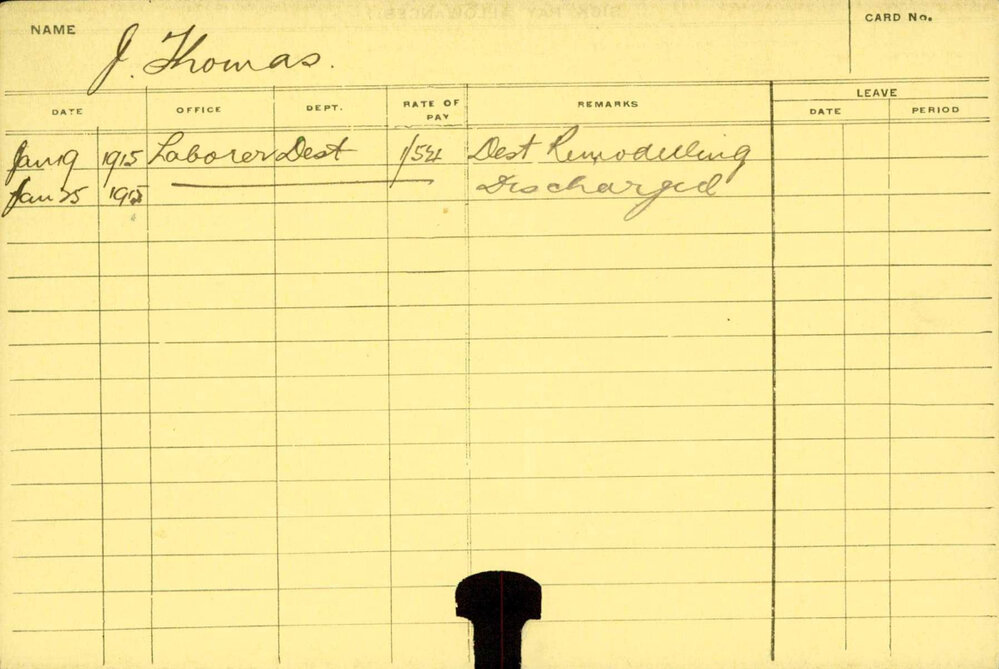 NAME J. Thomas.
CARD No.
DATE OFFICE DEPT. RATE OF PAY REMARKS LEAVE
DATE PERIOD
Jan 19 1915 Laborer Dest Dest Remodelling
Jan 25 1915 Discharged